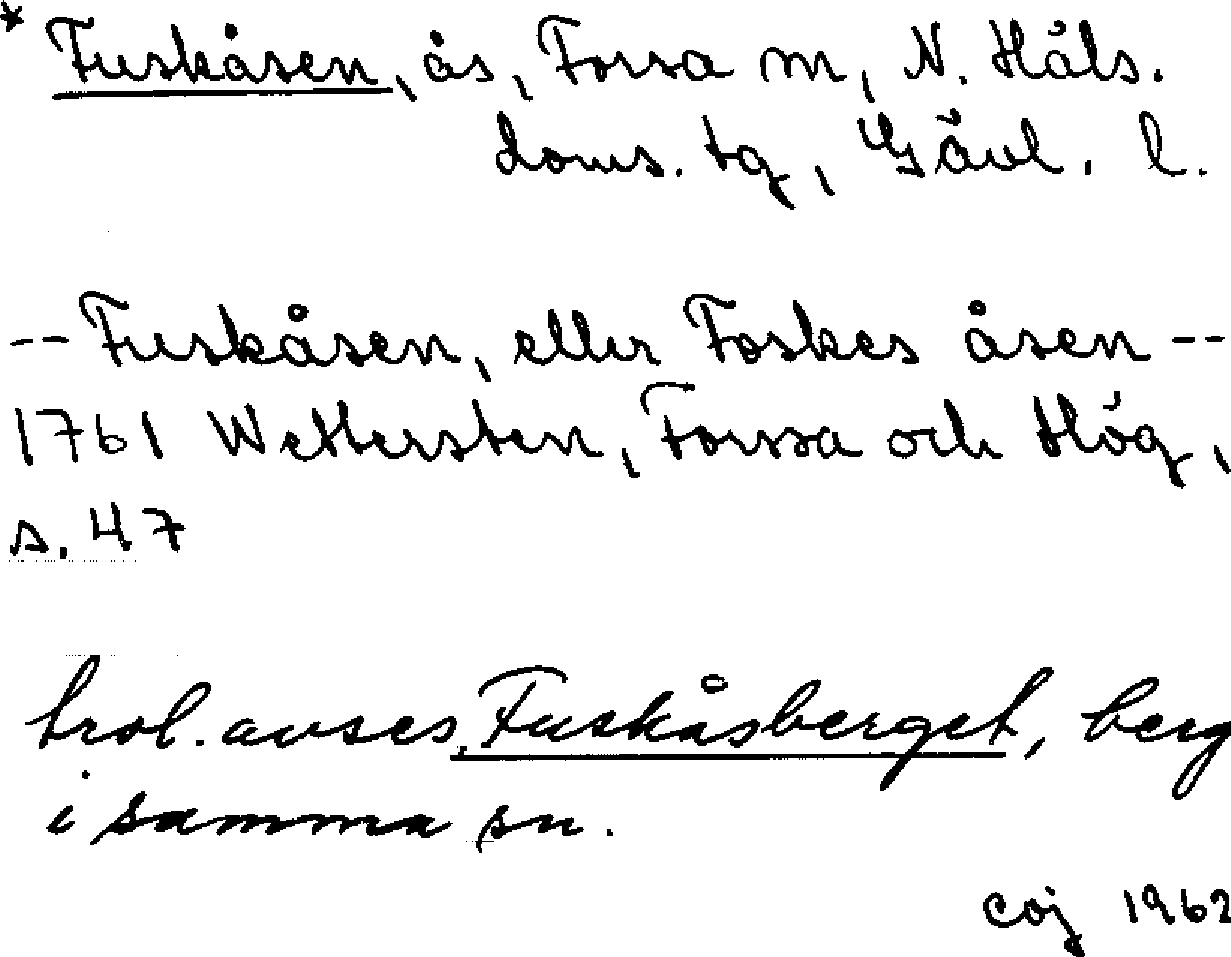 * Fuskåsen, ås, Forsa sn, N. Häls.
doms. tg, Gävl. l.
-- Fuskåsen, eller Foskes åsen --
1761 Wettersten, Forssa och Hög,
s. 47
trol. avses Fuskåsberget, berg
i samma sn.
coj 1962